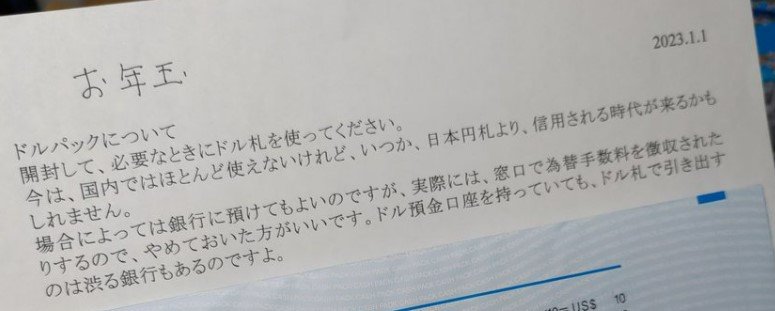 2023.1.1
お年玉
ドルパックについて
開封して、必要なときにドル札を使ってください。
今は、国内ではほとんど使えないけれど、いつか、日本円札より、信用される時代が来るかも
しれません。
場合によっては銀行に預けてもよいのですが、実際には、窓口で為替手数料を徴収された
りするので、やめておいた方がいいです。ドル預金口座を持っていても、ドル札で引き出す
のは渋る銀行もあるのですよ。
CASH PACK CASH PACK CASH PACK
= US$ 10